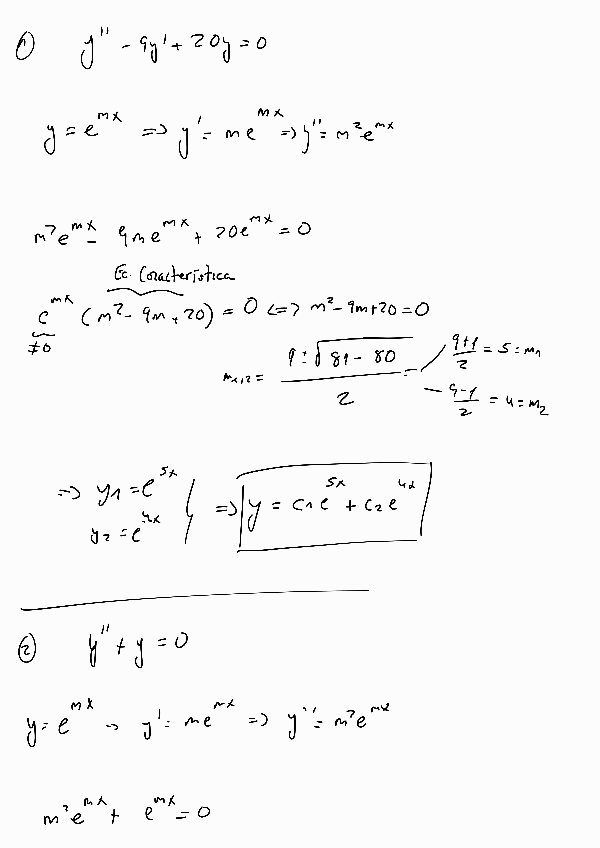 ① y'' - 9y' + 20y = 0
y = e^{mx} => y' = me^{mx} => y'' = m²e^{mx}
m²e^{mx} - 9me^{mx} + 20e^{mx} = 0
Ec. Característica
e^{mx} (m² - 9m + 20) = 0 <=> m² - 9m + 20 = 0
≠0
m_{1,2} = (9 ± √(81 - 80)) / 2 = (9+1)/2 = 5 = m₁
(9-1)/2 = 4 = m₂
=> y₁ = e^{5x} => y = c₁e^{5x} + c₂e^{4x}
y₂ = e^{4x}
② y'' + y = 0
y = e^{mx} → y' = me^{mx} => y'' = m²e^{mx}
m²e^{mx} + e^{mx} = 0